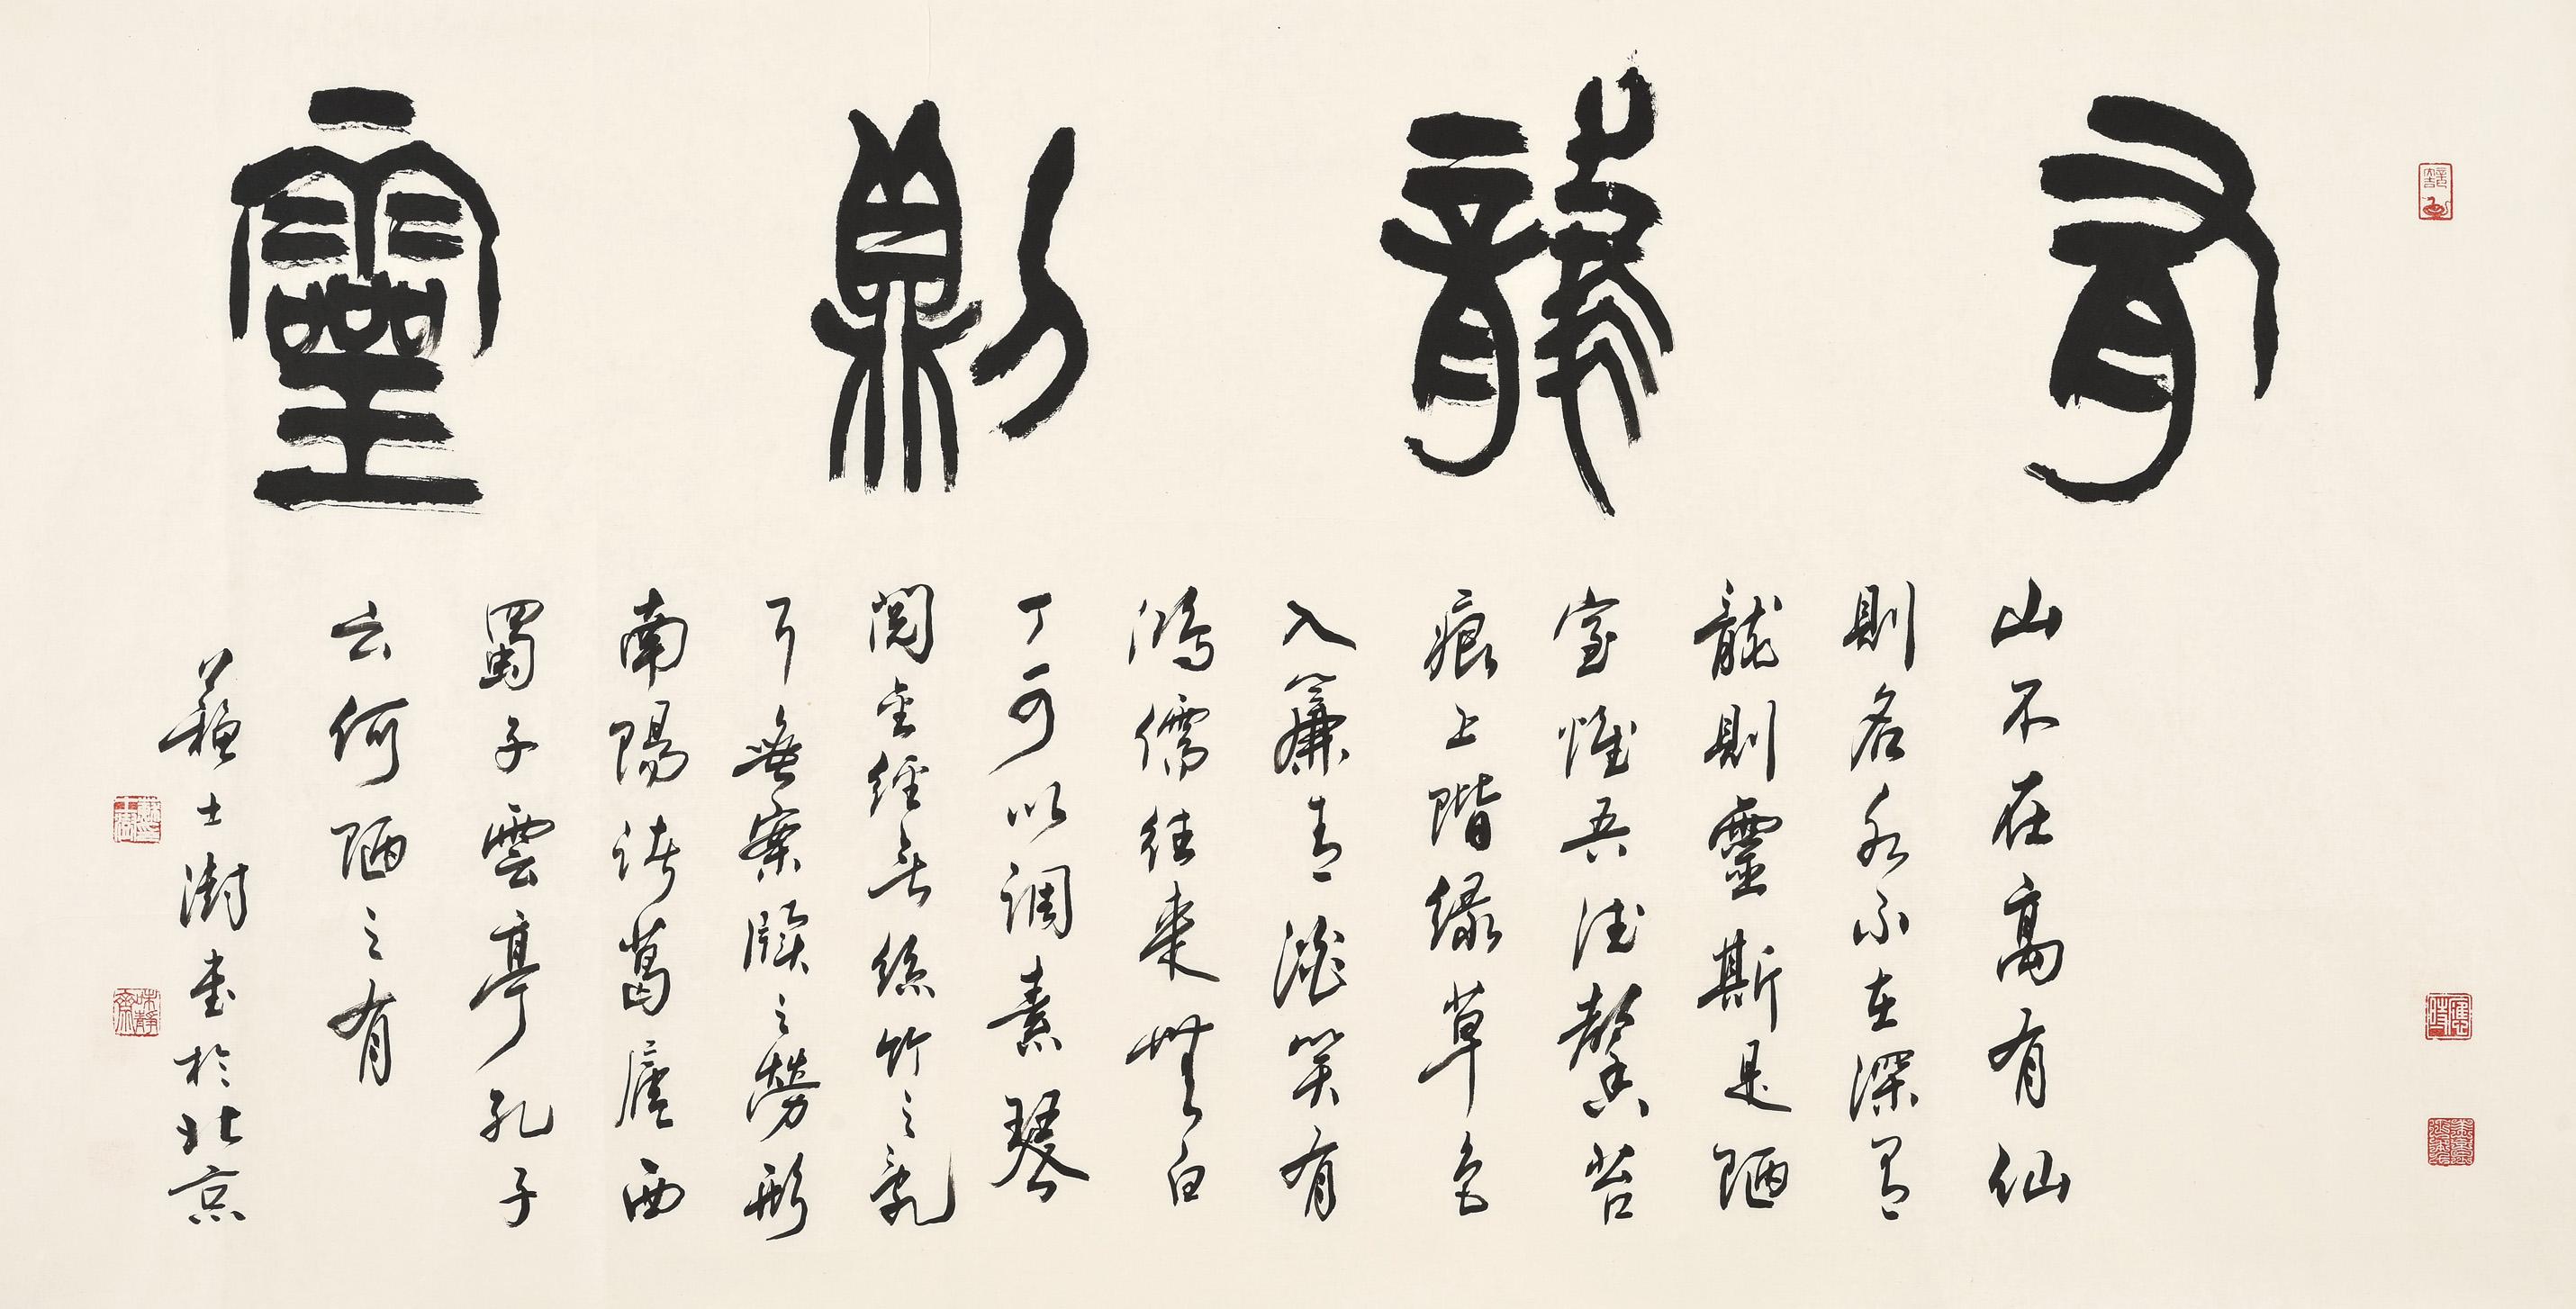 有龍則靈
山不在高有仙
則名水不在深有
龍則靈斯是陋
室惟吾德馨苔
痕上階緑草色
入簾青澹笑有
鴻儒往來無白
丁可以調素琴
閲金經無絲竹之亂
耳無案牘之勞形
南陽諸葛廬西
蜀子雲亭孔子
云何陋之有
蘇士澍書於北京
蘇士澍
味靜齋